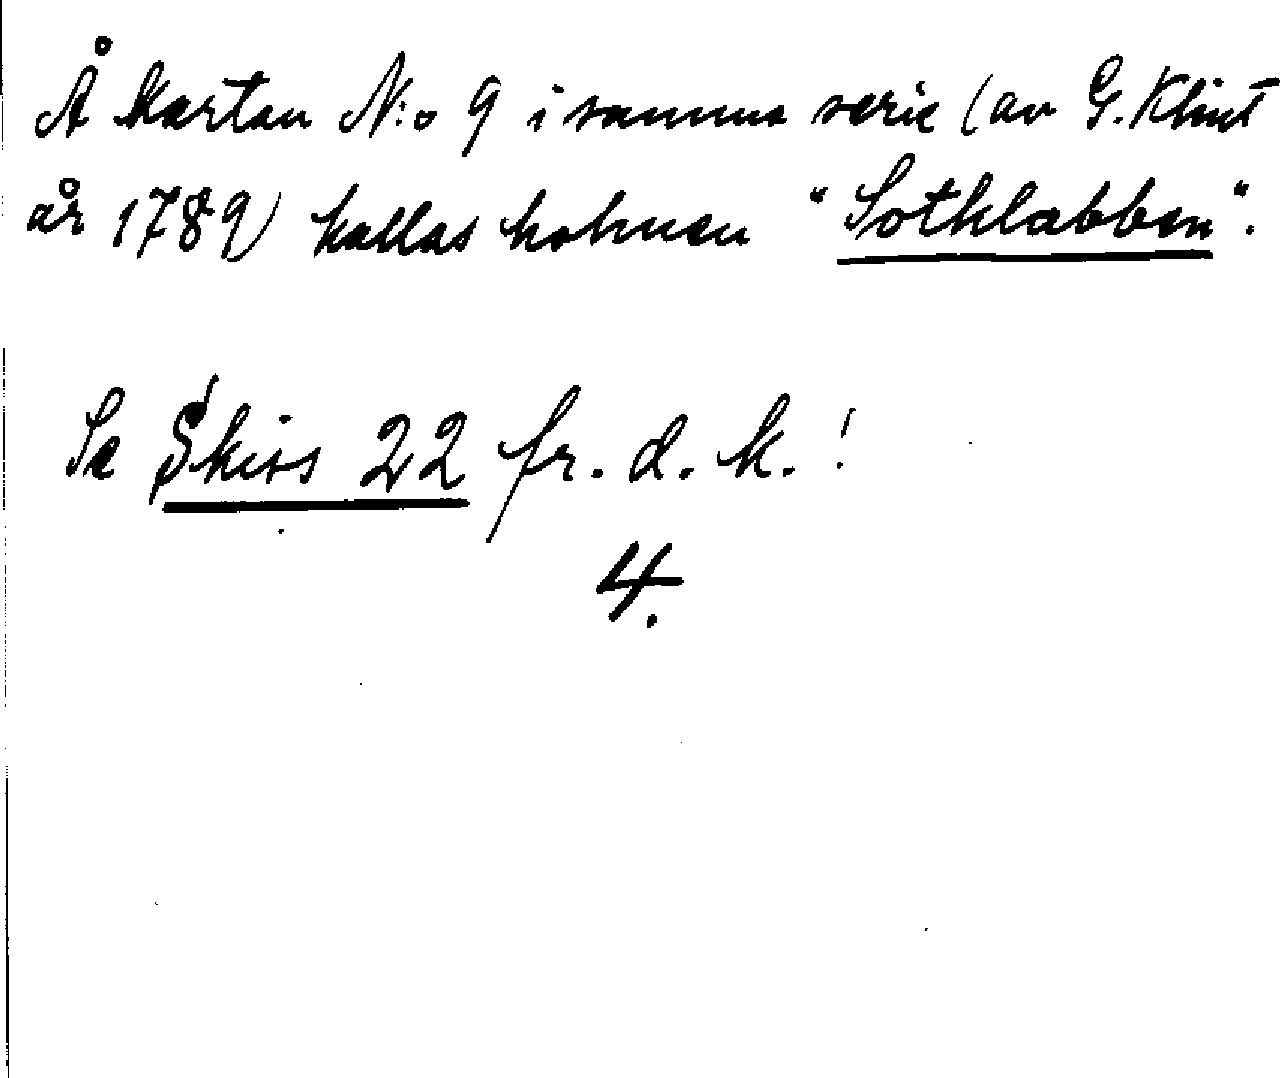 Å kartan N:o 9 i samma serie (av G. Klint
år 1789) kallas holmen "Sotklabben".
Se Skiss 22 fr. d. k.!
4.